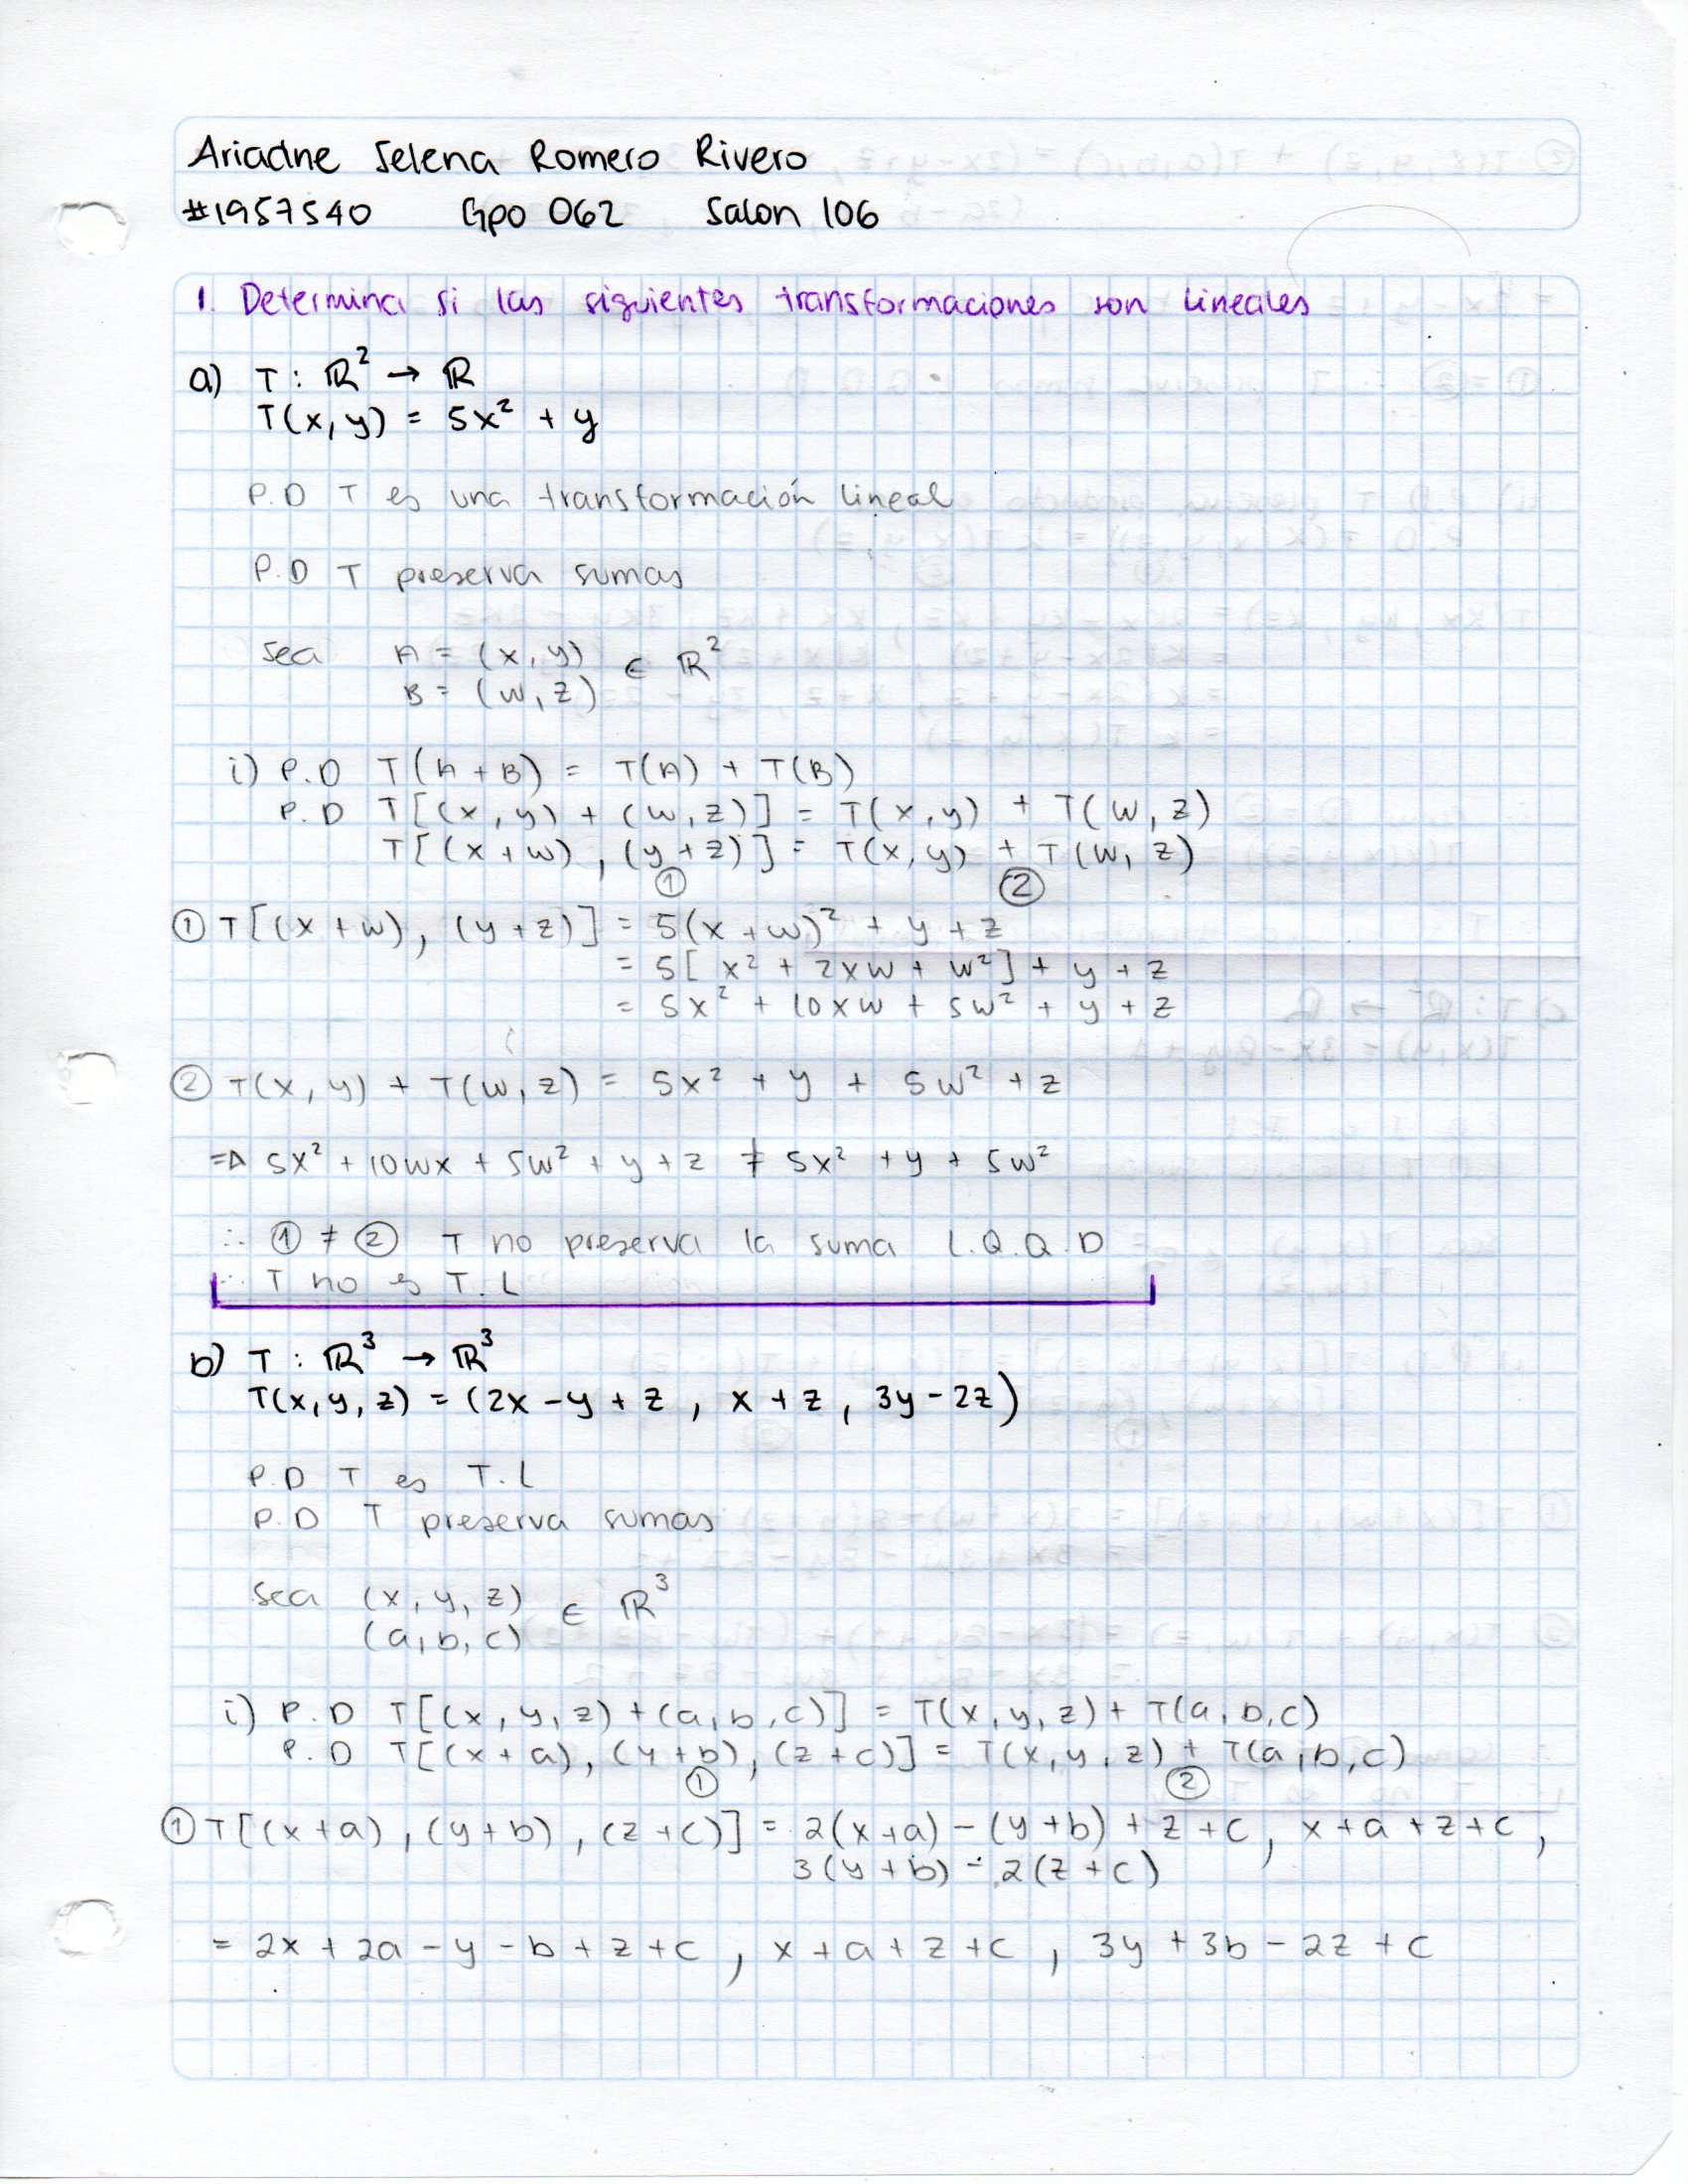 Ariadne Selena Romero Rivero
#1957540 Gpo 062 Salon 106
1. Determina si las siguientes transformaciones son lineales
a) T : ℝ² → ℝ
T(x, y) = 5x² + y
P.D T es una transformación lineal
P.D T preserva sumas
Sea A = (x, y) ∈ ℝ²
B = (w, z)
i) P.D T(A + B) = T(A) + T(B)
P.D T[(x, y) + (w, z)] = T(x, y) + T(w, z)
T[(x+w), (y+z)] = T(x, y) + T(w, z)
① ②
① T[(x+w), (y+z)] = 5(x+w)² + y + z
= 5[x² + 2xw + w²] + y + z
= 5x² + 10xw + 5w² + y + z
② T(x, y) + T(w, z) = 5x² + y + 5w² + z
⇒ 5x² + 10wx + 5w² + y + z ≠ 5x² + y + 5w²
∴ ① ≠ ② T no preserva la suma L.Q.Q.D
∴ T no es T.L
b) T : ℝ³ → ℝ³
T(x, y, z) = (2x - y + z , x + z , 3y - 2z)
P.D T es T.L
P.D T preserva sumas
Sea (x, y, z) ∈ ℝ³
(a, b, c)
i) P.D T[(x, y, z) + (a, b, c)] = T(x, y, z) + T(a, b, c)
P.D T[(x+a), (y+b), (z+c)] = T(x, y, z) + T(a, b, c)
① ②
① T[(x+a), (y+b), (z+c)] = 2(x+a) - (y+b) + z + c , x + a + z + c ,
3(y+b) - 2(z+c)
= 2x + 2a - y - b + z + c , x + a + z + c , 3y + 3b - 2z + c